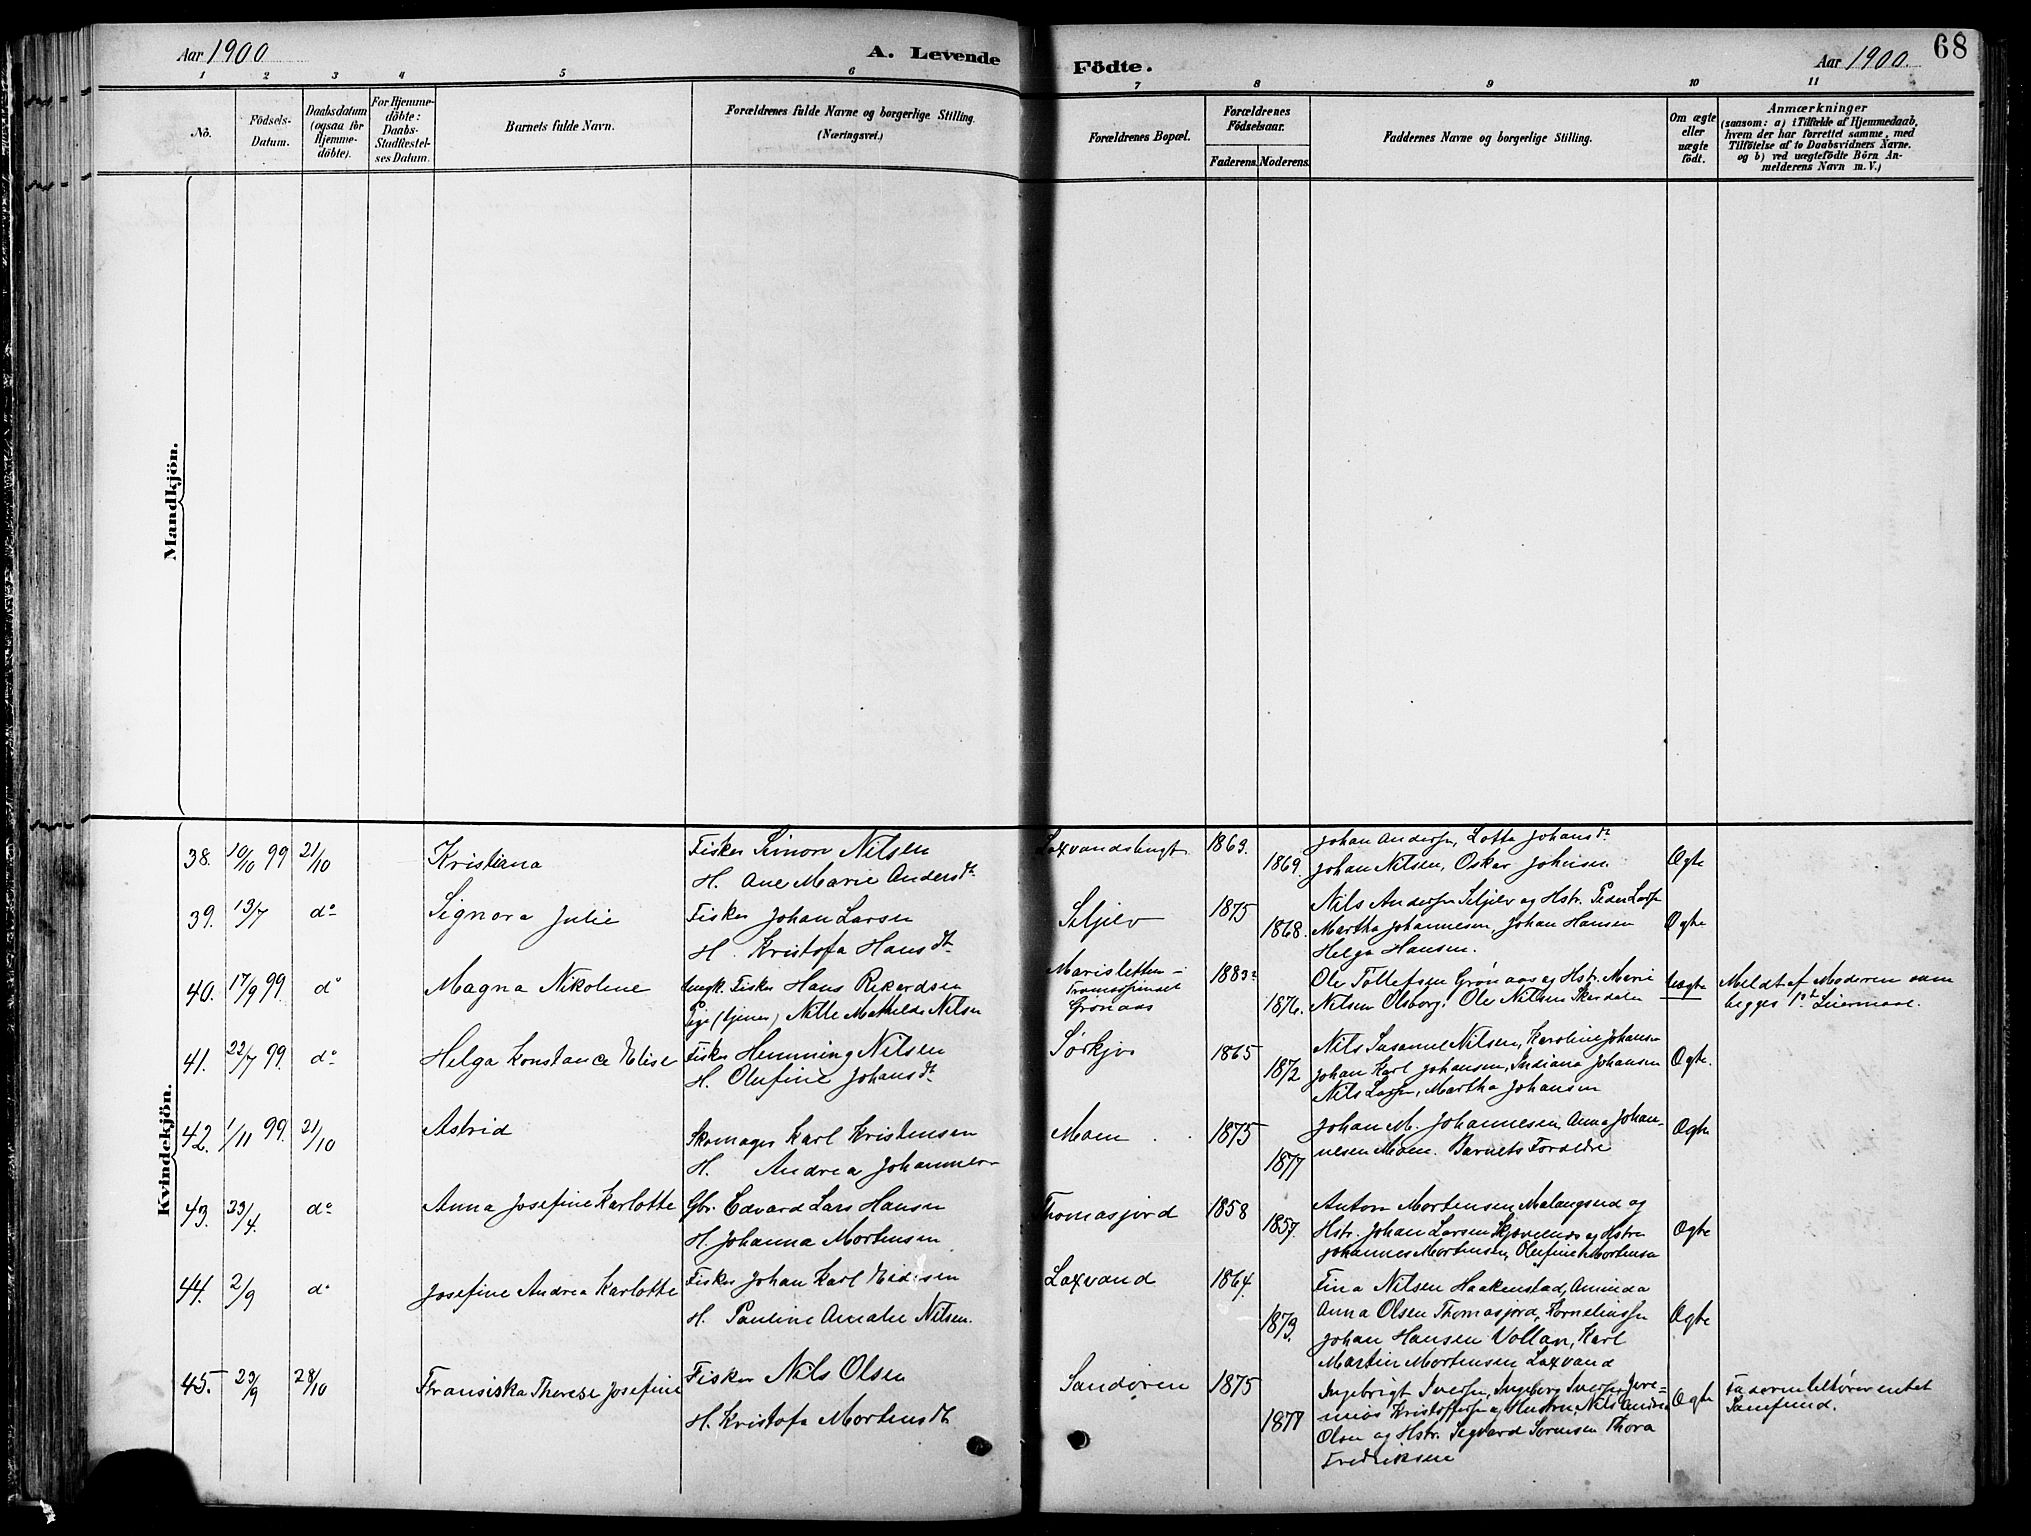 Aar 1900
A. Levende
Födte.
Aar 1900.
68
1 2 3 4 5 6 7 8 9 10 11
No.
Födsels-
Datum.
Daabsdatum
(ogsaa for
Hjemme-
döbte).
For Hjemme-
döbte:
Daabs-
Stadfæstel-
ses Datum.
Barnets fulde Navn.
Forældrenes fulde Navne og borgerlige Stilling.
(Næringsvei.)
Forældrenes Bopæl.
Forældrenes
Födselsaar.
Faderens. Moderens.
Faddernes Navne og borgerlige Stilling.
Om ægte
eller
uægte
födt.
Anmærkninger
(saasom: a) i Tilfælde af Hjemmedaab,
hvem der har forrettet samme, med
Tilföielse af to Daabsvidners Navne.
og b) ved uægtefödte Börn An-
melderens Navn m. V.)
Mandkjön.
Kvindekjön.
38. 10/10 99 21/10 Kristiana
Fisker Simon Nilsen
H. Ane Marie Andersdt.
Laxvandsbugt 1863.
1869.
Johan Andersn, Lotta Johansdt
Johan Nilsen, Oskar Johnsen
Ægte
39. 13/7 do Signora Julie
Fisker Johan Larsen
H. Kristofa Hansdt.
Seljelv 1875
1868.
Nils Andersn Seljelv og Hstr. Peder Larsn
Martha Johannesen, Johan Hansen
Helga Hansen.
Ægte
40. 17/9 99. do Magna Nikoline
ungk. Fisker Hans Rikardsen
Pige (tjener) Nille Mathilde Nilsen
Marisletten -
Tromsøsundet
Grønaas
1883
1876.
Ole Tollefsen Grønaas og Hstr. Marie
Nilsen Olsborg. Ole Nilsen Skardalen
Uægte
Meldt af Moderen som
begges 1st Leiermaal.
41. 22/7 99. do Helga Konstance Elise
Fisker Hemming Nilsen
H. Olufine Johansdt.
Sørkjos 1865
1872
Nils Susanne Nilsen, Karoline Johansn
Johan Karl Johansen, Indiana Johansen
Nils Larsn, Martha Johansen
Ægte.
42. 1/11 99. 21/10 Astrid
Skomager Karl Kristensen
H. Andrea Johannesn
Moen 1875
1877
Johan M. Johannesen, Anna Johan-
nesen Moen. Barnets Forældre
Ægte
43. 23/4. do Anna Josefine Karlotte
Gbr. Edvard Lars Hansen
H. Johanna Mortensen
Thomasjord 1858
1857.
Anton Mortensen Malangseid og
Hstr. Johan Larsen Skjævelnes og Hstru
Johannes Mortensen, Olufine Mortensen
Ægte
44. 2/9 do Josefine Andrea Karlotte
Fisker Johan Karl
H. Pauline Amalie Nilsen.
Laxvand 1864.
1873.
Fina Nilsen Haakenstad, Aminda
Anna Olsen Thomasjord, Korneliussn
Johan Hansen Vollan, Karl
Martin Mortensen Laxvand
Ægte
45. 23/9 28/10 Fransiska Therese Josefine
Fisker Nils Olsen
H. Kristofa Mortensdt.
Sandøren 1875
1877
Ingebrigt Iversn, Ingeborg Iversn, Jere-
mias Kristoffersn og Hustru, Nils Andreas
Olsen og Hstr. Segvard Sørensen Thora
Fredriksen
Ægte
Faderen tilhører intet
Samfund.